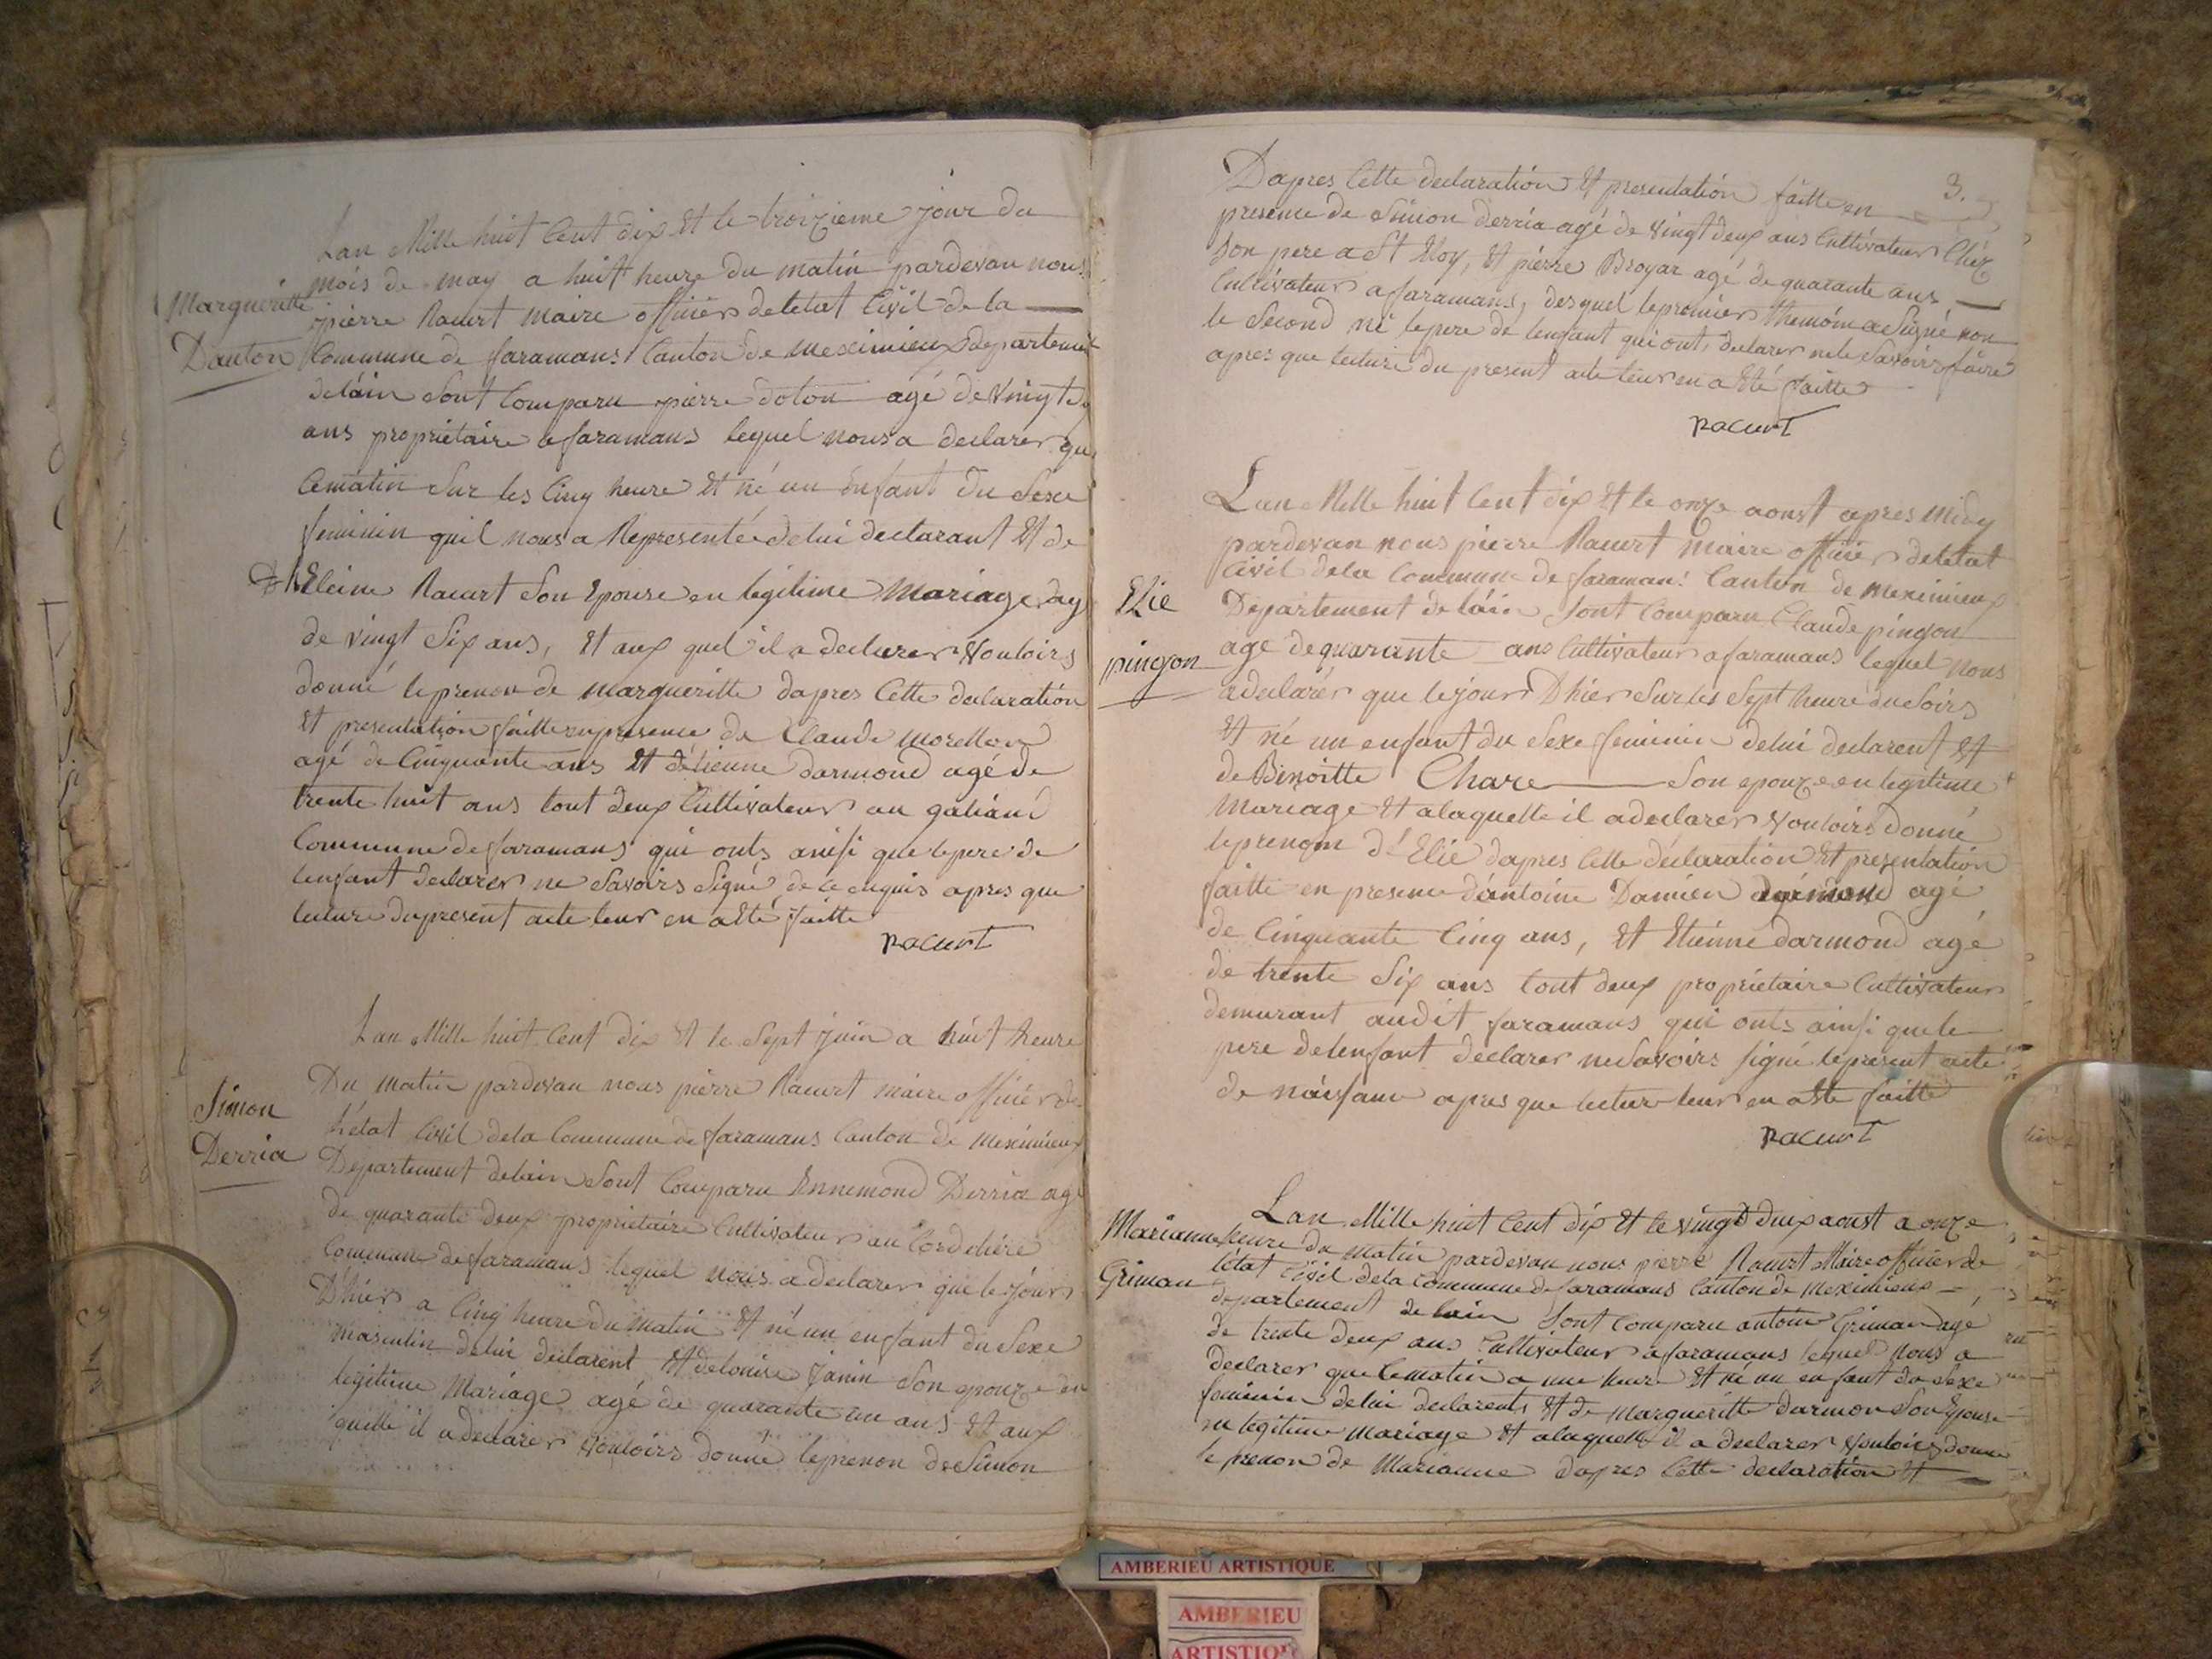 Lan Mille huit Cent dix Et le troizieme jour du
mois de may a huit heure du matin pardevan nous
pierre Racurt maire officier de letat Civil de la
Margueritte
Danton
Commune de faramans Canton de meximieux departement
de láin Sont Comparu pierre doton agé de vingt
ans propriétaire a faramans lequel nous a declarer que
Cematin Sur les Cinq heure Et né un Enfant du Sexe
feminin quil nous a Representée de lui declarant Et de
Eleine Racurt Son Epouse en legitime Mariage agé
de vingt Six ans, Et aux quel il a declarer vouloirs
donné le prenon de margueritte dapres Cette declaration
Et presentation faitte en presence de Claude morellon
agé de Cinquante ans Et détienne darmond agé de
trente huit ans tout deux Cultivateur au
Commune de faramans qui onts ainsi que le pere de
lenfant declarer ne Savoirs Signé de ce enquis apres que
lecture du present acte leur en a Eté faitte
Racurt
Lan Mille huit Cent dix Et le Sept juin a huit heure
Du matin pardevan nous pierre Racurt maire officier de
Simon
Derria
l'état Civil de la Commune de faramans Canton de meximieux
Departement de lain Sont Comparu Ennemond Derria agé
de quarante deux propriétaire Cultivateur au
Commune de faramans lequel nous a declarer que le jour
D'hier a Cinq heure du matin Et né un enfant du Sexe
masculin de lui declarent Et de louise Janin Son epouze en
legitime Mariage agé de quarante un ans Et aux
quelle il a declarer vouloirs donné le prenon de Simon
3.
Dapres Cette declaration Et presentation faitte en
presence de Simon derria agé de vingt deux ans Cultivateur Chéz
Son pere a St Eloy, Et pierre Broyar agé de quarante ans
Cultivateur a faramans, desquel le premier themoin a Signé non
le Second ni le pere de lenfant qui ont declarer ne le Savoirs faire
apres que lecture du present acte leur en a Eté faitte
Racurt
Lan Mille huit Cent dix Et le onze aoust apres midy
pardevan nous pierre Racurt maire officier de letat
Civil de la Commune de faramans Canton de meximieux
Elie
pingon
Departement de láin Sont Comparu Claude pingon
agé de quarante ans Cultivateur a faramans lequel nous
a declarér que le jour D'hier Sur les Sept heure du Soirs
Et né un enfant du Sexe feminin de lui declarent Et
de Benoitte Chare Son epouze en legitime
Mariage Et a laquelle il a declarer vouloirs donné
le prenom d'Elie dapres Cette déclaration Et presentation
faitte en presence d'antoine Damien agé
de Cinquante Cinq ans, Et Etienne darmond agé
de trente Six ans tout deux propriétaire Cultivateur
demurant audit faramans qui onts ainsi que le
pere de lenfant declarer ne Savoirs signé le present acte
de náissance apres que lecture leur en a Eté faitte
Racurt
Lan Mille huit Cent dix Et le vingt deux aoust a onze
Marianne
Griman
heure du matin pardevan nous pierre Racurt Maire officier de
l'état Civil de la Commune de faramans Canton de meximieux
departement de lain Sont Comparu antoine Griman agé
de trente deux ans Cultivateur a faramans lequel nous a
declarer que Cematin a une heure Et né un enfant du Sexe
feminin de lui declarents Et de Margueritte darmon Son Epouse
en legitime mariage Et a laquelle il a declarer vouloirs donné
le prenon de Marianne dapres Cette declaration Et
AMBERIEU ARTISTIQUE
AMBERIEU
ARTISTIQU